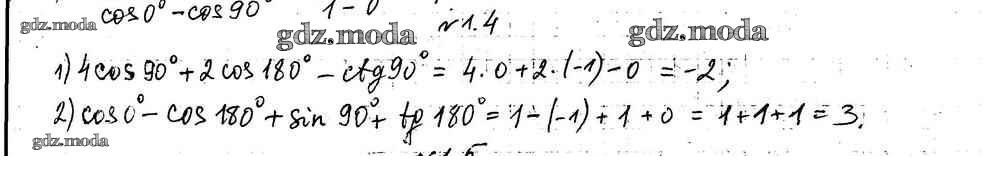 cos0° - cos90° 1 - 0
gdz.moda
№1.4
gdz.moda gdz.moda
1) 4cos90° + 2cos180° - ctg90° = 4·0+2·(-1)-0 = -2;
2) cos0° - cos180° + sin90° + tg180° = 1-(-1)+1+0 = 1+1+1=3.
gdz.moda